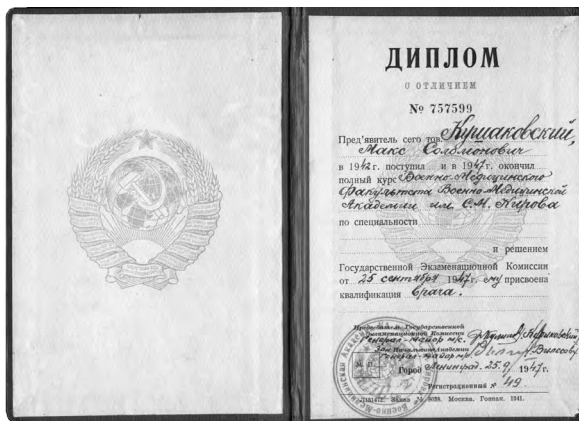 ДИПЛОМ
С ОТЛИЧИЕМ
№ 757599
Пред'явитель сего тов. Кушаковский,
Макс Соломонович
в 1942 г. поступил и в 1947 г. окончил
полный курс Военно-Медицинского
Факультета Военно-Медицинской
Академии им. С. М. Кирова
по специальности
и решением
Государственной Экзаменационной Комиссии
от 25 сентября 1947 г. ему присвоена
квалификация врача.
Председатель Государственной
Экзаменационной Комиссии
Генерал-майор м/с.
Зам. Начальника Академии
Генерал-майор м/с
Город Ленинград. 25.9/ 1947 г.
Регистрационный № 49
Москва. Гознак. 1941.